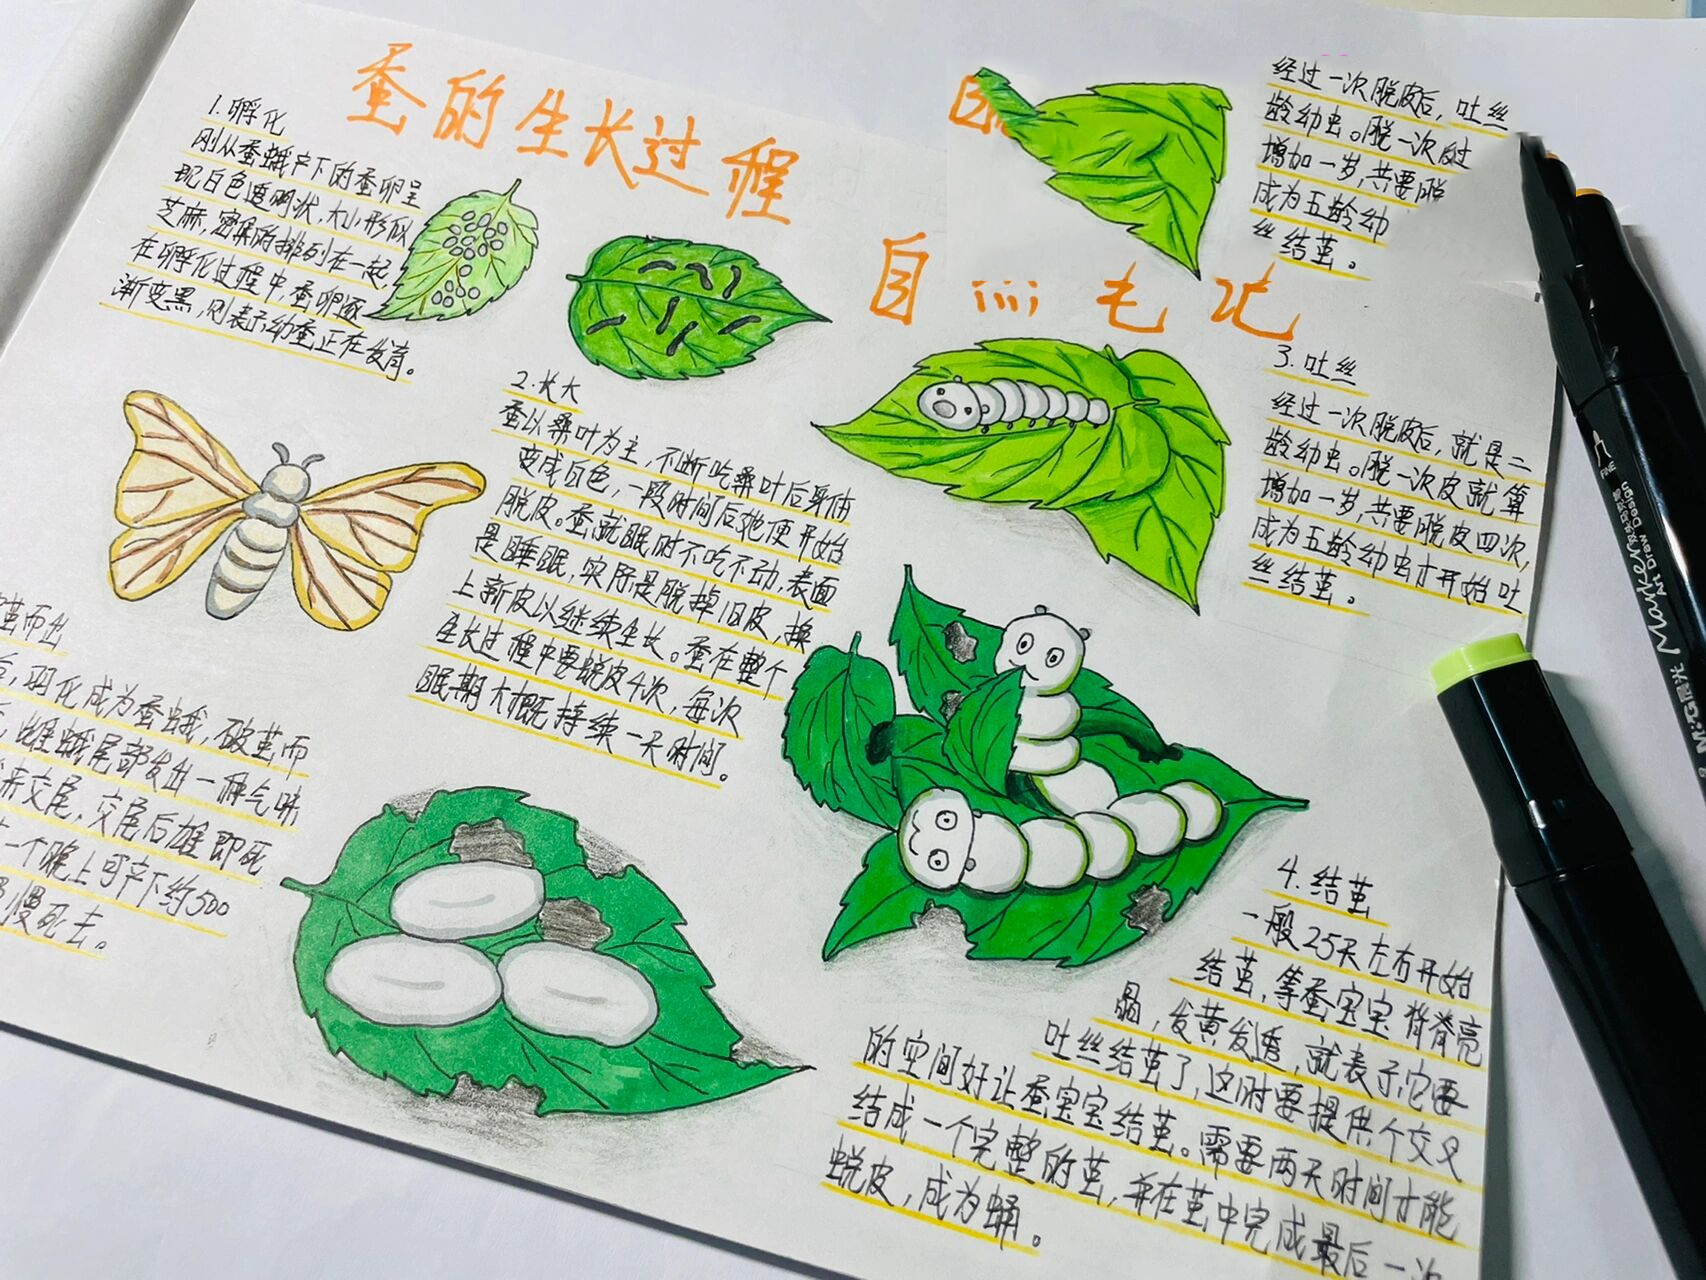 蚕的生长过程
1.孵化
刚从蚕蛾产下的蚕卵呈
现白色透明状,大小形似
芝麻,密集的排列在一起,
在孵化过程中,蚕卵逐
渐变黑,则表示幼蚕正在发育。
2.长大
蚕以桑叶为主,不断吃桑叶后身体
变成白色,一段时间后她便开始
脱皮。蚕就眠时不吃不动,表面
是睡眠,实际是脱掉旧皮,换
上新皮以继续生长。蚕在整个
生长过程中要蜕皮4次,每次
眠期大概持续一天时间。
经过一次脱皮后,吐丝
龄幼虫。脱一次
增加一岁,共要脱
成为五龄幼
丝结茧。
自
3.吐丝
经过一次脱皮后,就是二
龄幼虫。脱一次皮就算
增加一岁,共要脱皮四次,
成为五龄幼虫才开始吐
丝结茧。
4.结茧
一般25天左右开始
结茧,等蚕宝宝背脊亮
晶,发黄发透,就表示它要
吐丝结茧了,这时要提供个交叉
的空间好让蚕宝宝结茧。需要两天时间才能
结成一个完整的茧,并在茧中完成最后一次
蜕皮,成为蛹。
茧而出
后,羽化成为蚕蛾,破茧而
,雌蛾尾部发出一种气味
来交尾,交尾后雄即死
一个晚上可产下约500
慢死去。
FINE
Art Drew Design
Marker